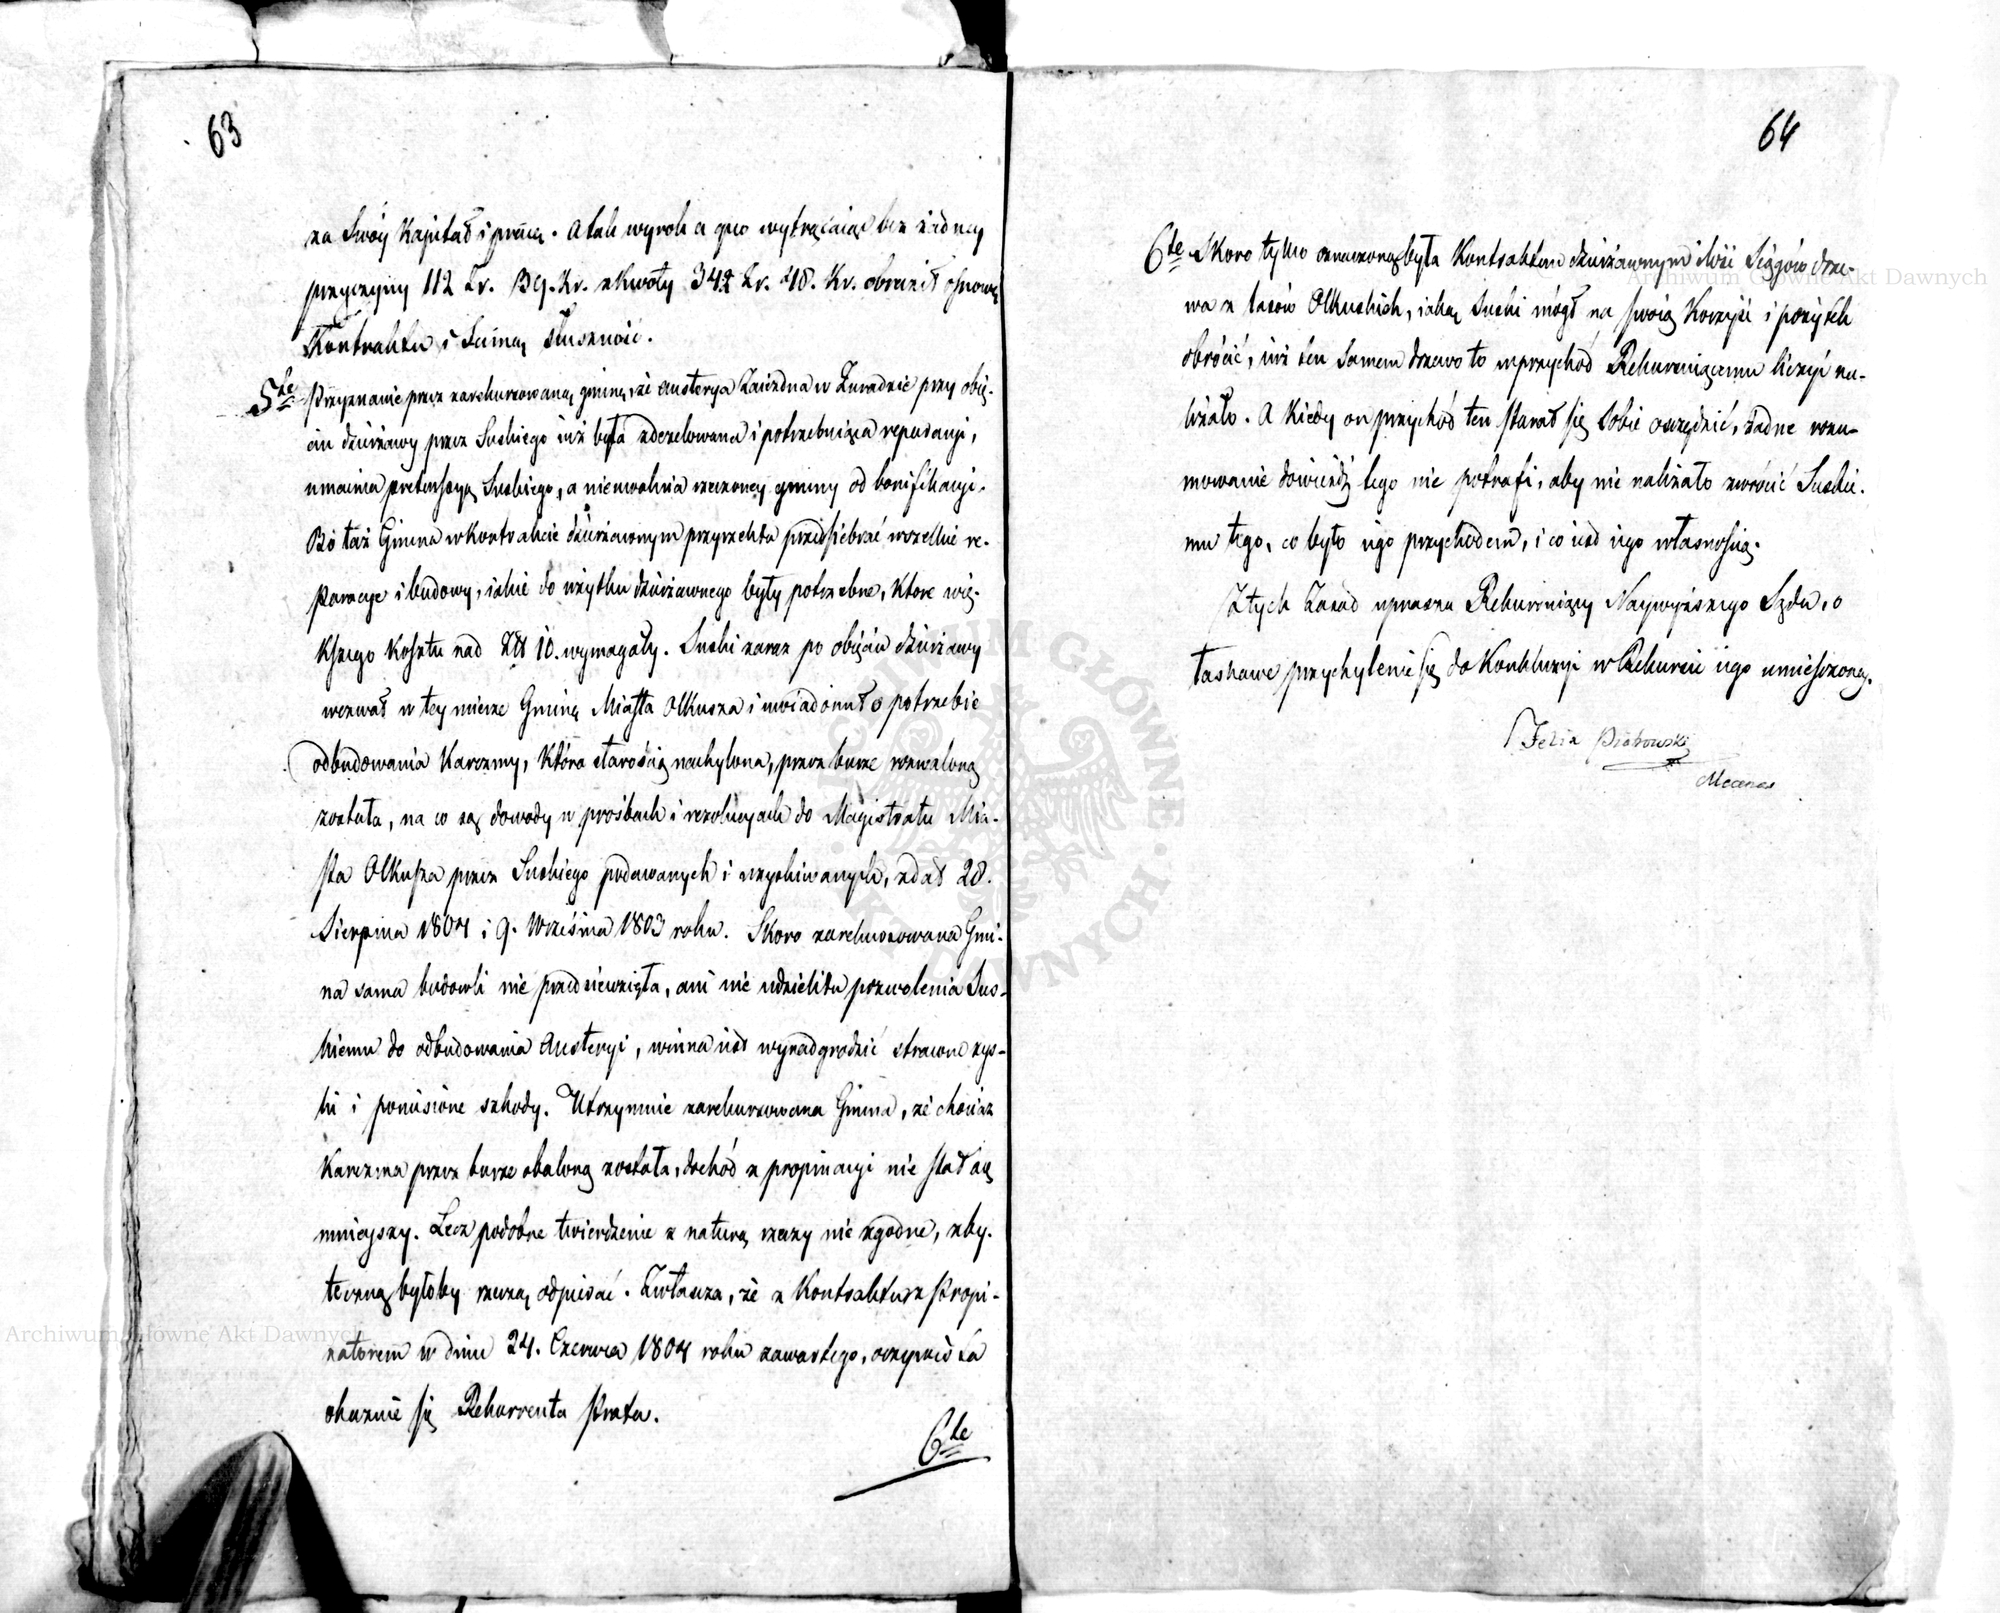 63
za swóy Kapitał i pracę. A tak wyrok a quo wytrącaiąc bez żadney
przyczyny 112 Zr. 39. Kr. z kwoty 342 Zr. 48. Kr. obraził osnowę
Kontraktu i samą słuszność.
5te Przyznanie przez zarekurzowaną gminę, że austerya Zaiezdna w Zuradzie przy obię-
ciu dzierżawy przez Suskiego iuż była zdezelowana i potrzebuiąca reparacyi,
umacnia pretensyą Suskiego, a nieuwalnia rzeczoney gminy od bonifikacyi.
Bo taż Gmina w Kontrakcie dzierżawnym przyrzekła przedsiebrać wszelkie re-
paracye i budowy, iakie do użytku dzierżawnego były potrzebne, które wię-
kszego kosztu nad Zł 10. wymagały. Suski zaraz po obięciu dzierżawy
wezwał w tey mierze Gminę Miasta Olkusza i uwiadomił o potrzebie
odbudowania Karczmy, która starością nachylona, przez burze rozwaloną
została, na co są dowody w prośbach i rezolucyach do Magistratu Mia-
sta Olkusza przez Suskiego podawanych i uzyskiwanych, z dat 28.
Sierpnia 1804 i 9. Września 1803 roku. Skoro zarekurzowana Gmi-
na sama budowli nie przedsiewzięła, ani nie udzieliła pozwolenia Sus-
kiemu do odbudowania Austeryi, winna iest wynadgrodzić stracone zys-
ki i poniesione szkody. Utrzymuie zarekurzowana Gmina, że chociaż
Karczma przez burze obaloną została, dochód z propinacyi nie stał się
mnieyszy. Lecz podobne twierdzenie z naturą rzeczy nie zgodne, zby-
teczną byłoby rzeczą odpierać. Zwłaszcza, że z Kontraktu z Propi-
natorem w dniu 24. Czerwca 1804 roku zawartego, oczywista
okazuie się Rekurrenta strata.
6te
64
6te Skoro tylko oznaczoną była Kontraktem dzierżawnym ilość Siągów drze-
wa z lasów Olkuskich, iaką Suski mógł na swoią Korzyść i pożytek
obrócić, iuż tem samem drzewo to w przychód Rekurruiącemu liczyć na-
leżało. A kiedy on przychód ten starał się sobie oszczędzić, żadne rozu-
mowanie dowieśdź tego nie potrafi, aby nie należało zwrócić Suskie-
mu tego, co było iego przychodem, i co iest iego własnością.
Z tych Zasad uprasza Rekurruiący Naywyższego Sądu, o
łaskawe przychylenie się do Konkluzyi w Rekursie iego umieszczoney.
Felix Piotrowski
Mecenas
ARCHIWUM GŁÓWNE AKT DAWNYCH
Archiwum Główne Akt Dawnych
Archiwum Główne Akt Dawnych